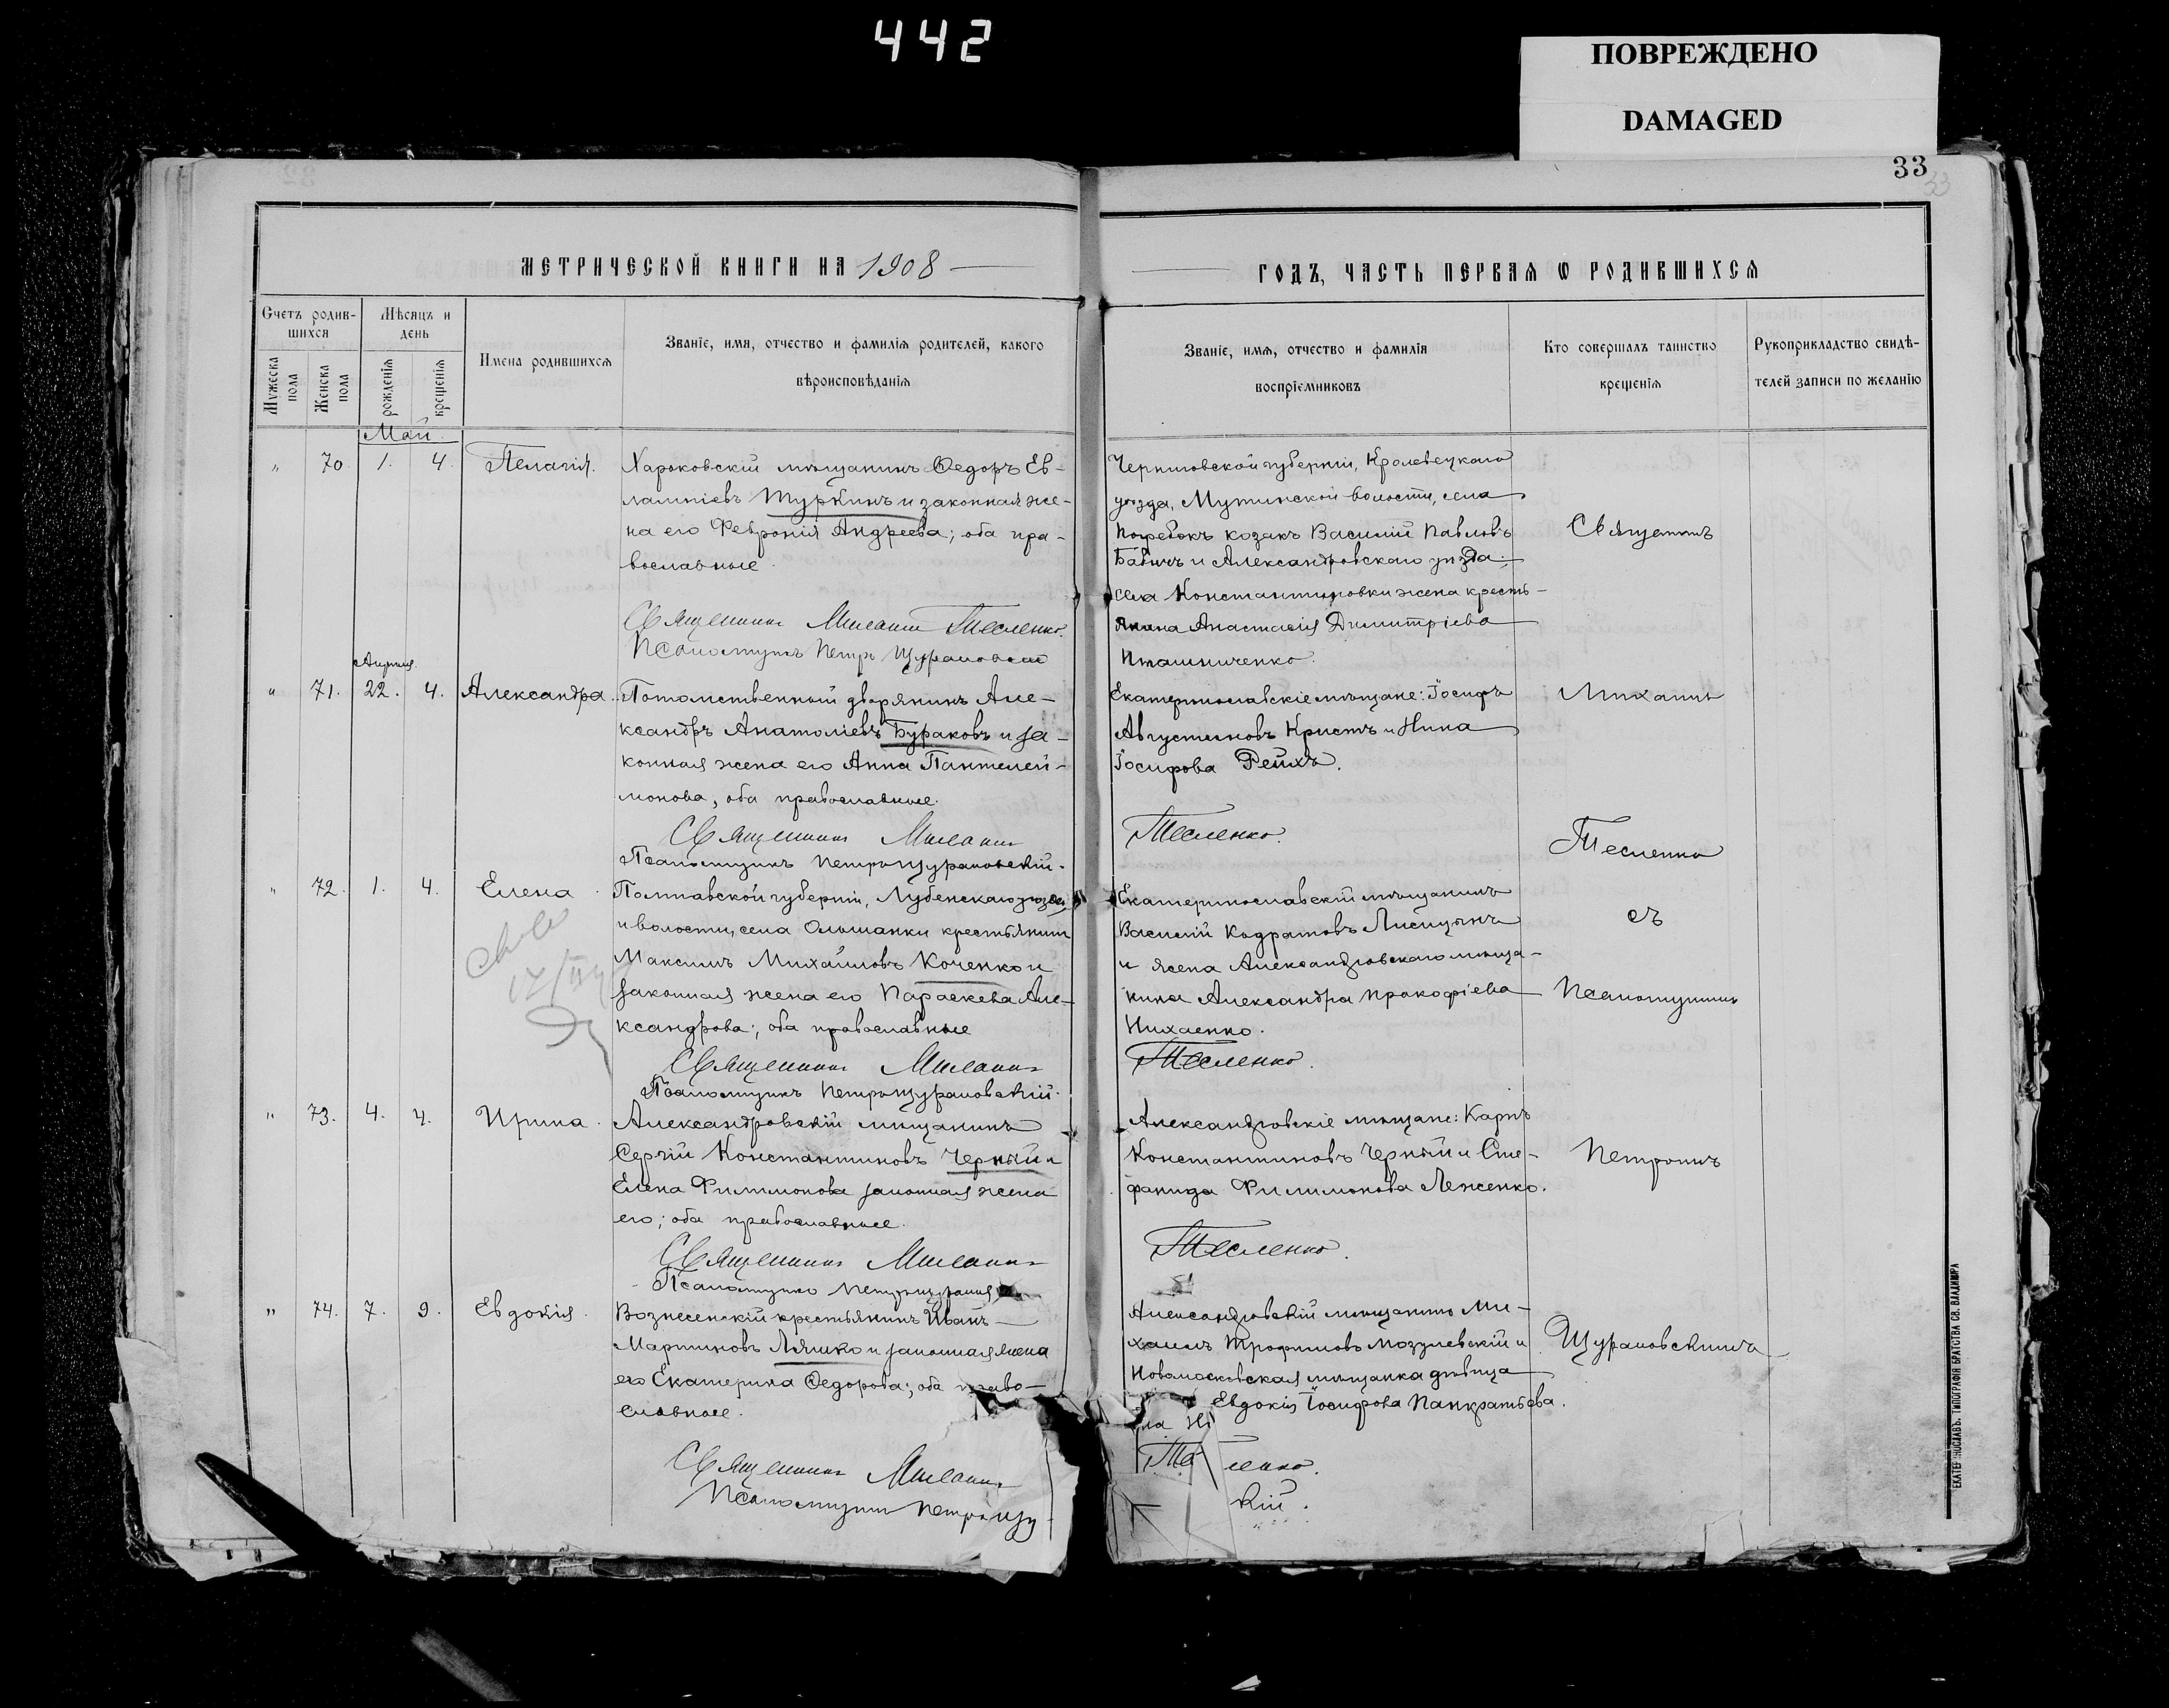 442
ПОВРЕЖДЕНО
DAMAGED
33
33
МЕТРИЧЕСКОЙ КНИГИ НА 1908
ГОДЪ, ЧАСТЬ ПЕРВАЯ Ѡ РОДИВШИХСЯ
Счетъ родив-
шихся
Мѣсяцъ и
день
Мужеска
пола
Женска
пола
рожденія
крещенія
Имена родившихся
Званіе, имя, отчество и фамилія родителей, какого
вѣроисповѣданія
Званіе, имя, отчество и фамилія
воспріемниковъ
Кто совершалъ таинство
крещенія
Рукоприкладство свидѣ-
телей записи по желанію
Май
" 70. 1. 4. Пелагія.
Харьковскій мѣщанинъ Ѳедоръ Ев-
лампіевъ Шуркинъ и законная же-
на его Февронія Андреева; оба пра-
вославные.
Священникъ Михаилъ Тесленко.
Псаломщикъ Петръ Щурановскій
Черниговской губерніи, Кролевецкаго
уѣзда, Мутинской волости, села
козакъ Василій Павловъ
Бабичъ и Александровскаго уѣзда,
села Константиновки жена кресть-
янина Анастасія Димитріева
Пташниченко.
Священникъ
Апрѣля.
" 71. 22. 4. Александра.
Потомственный дворянинъ Але-
ксандръ Анатоліевъ Бураковъ и за-
конная жена его Анна Пантелей-
монова, оба православные.
Священникъ Михаилъ
Тесленко.
Псаломщикъ Петръ Щурановскій.
Екатеринославскіе мѣщане: Іосифъ
Августиновъ Кристъ и Нина
Іосифова Рейхъ.
Михаилъ
Тесленко
" 72. 1. 4. Елена.
Полтавской губерніи, Лубенскаго уѣзда
и волости, села Ольшанки крестьянинъ
Максимъ Михайловъ Коченко и
законная жена его Параскева Але-
ксандрова; оба православные
Священникъ Михаилъ
Тесленко.
Псаломщикъ Петръ Щурановскій.
Екатеринославскій мѣщанинъ
Василій Кодратовъ Лисицынъ
и жена Александровскаго мѣща-
нина Александра Прокофіева
Михаенко.
съ
Псаломщикомъ
" 73. 4. 4. Ирина.
Александровскій мѣщанинъ
Сергій Константиновъ Черный и
Елена Филимонова законная жена
его; оба православные.
Священникъ Михаилъ
Тесленко.
Псаломщикъ Петръ
Александровскіе мѣщане: Карпъ
Константиновъ Черный и Сте-
фанида Филимонова Леженко.
Петромъ
" 74. 7. 9. Евдокія.
Вознесенскій крестьянинъ Иванъ
Мартиновъ Ляшко и законная жена
его Екатерина Ѳедорова; оба право-
славные.
Священникъ Михаилъ
Псаломщикъ Петръ Щу
Александровскій мѣщанинъ Ми-
хаилъ Трофимовъ Мозулевскій и
Новомосковская мѣщанка дѣвица
Евдокія Іосифова Панкратьева.
ленко.
кій.
Щурановскимъ
ЕКАТЕРИНОСЛАВЪ. ТИПОГРАФІЯ БРАТСТВА СВ. ВЛАДИМІРА